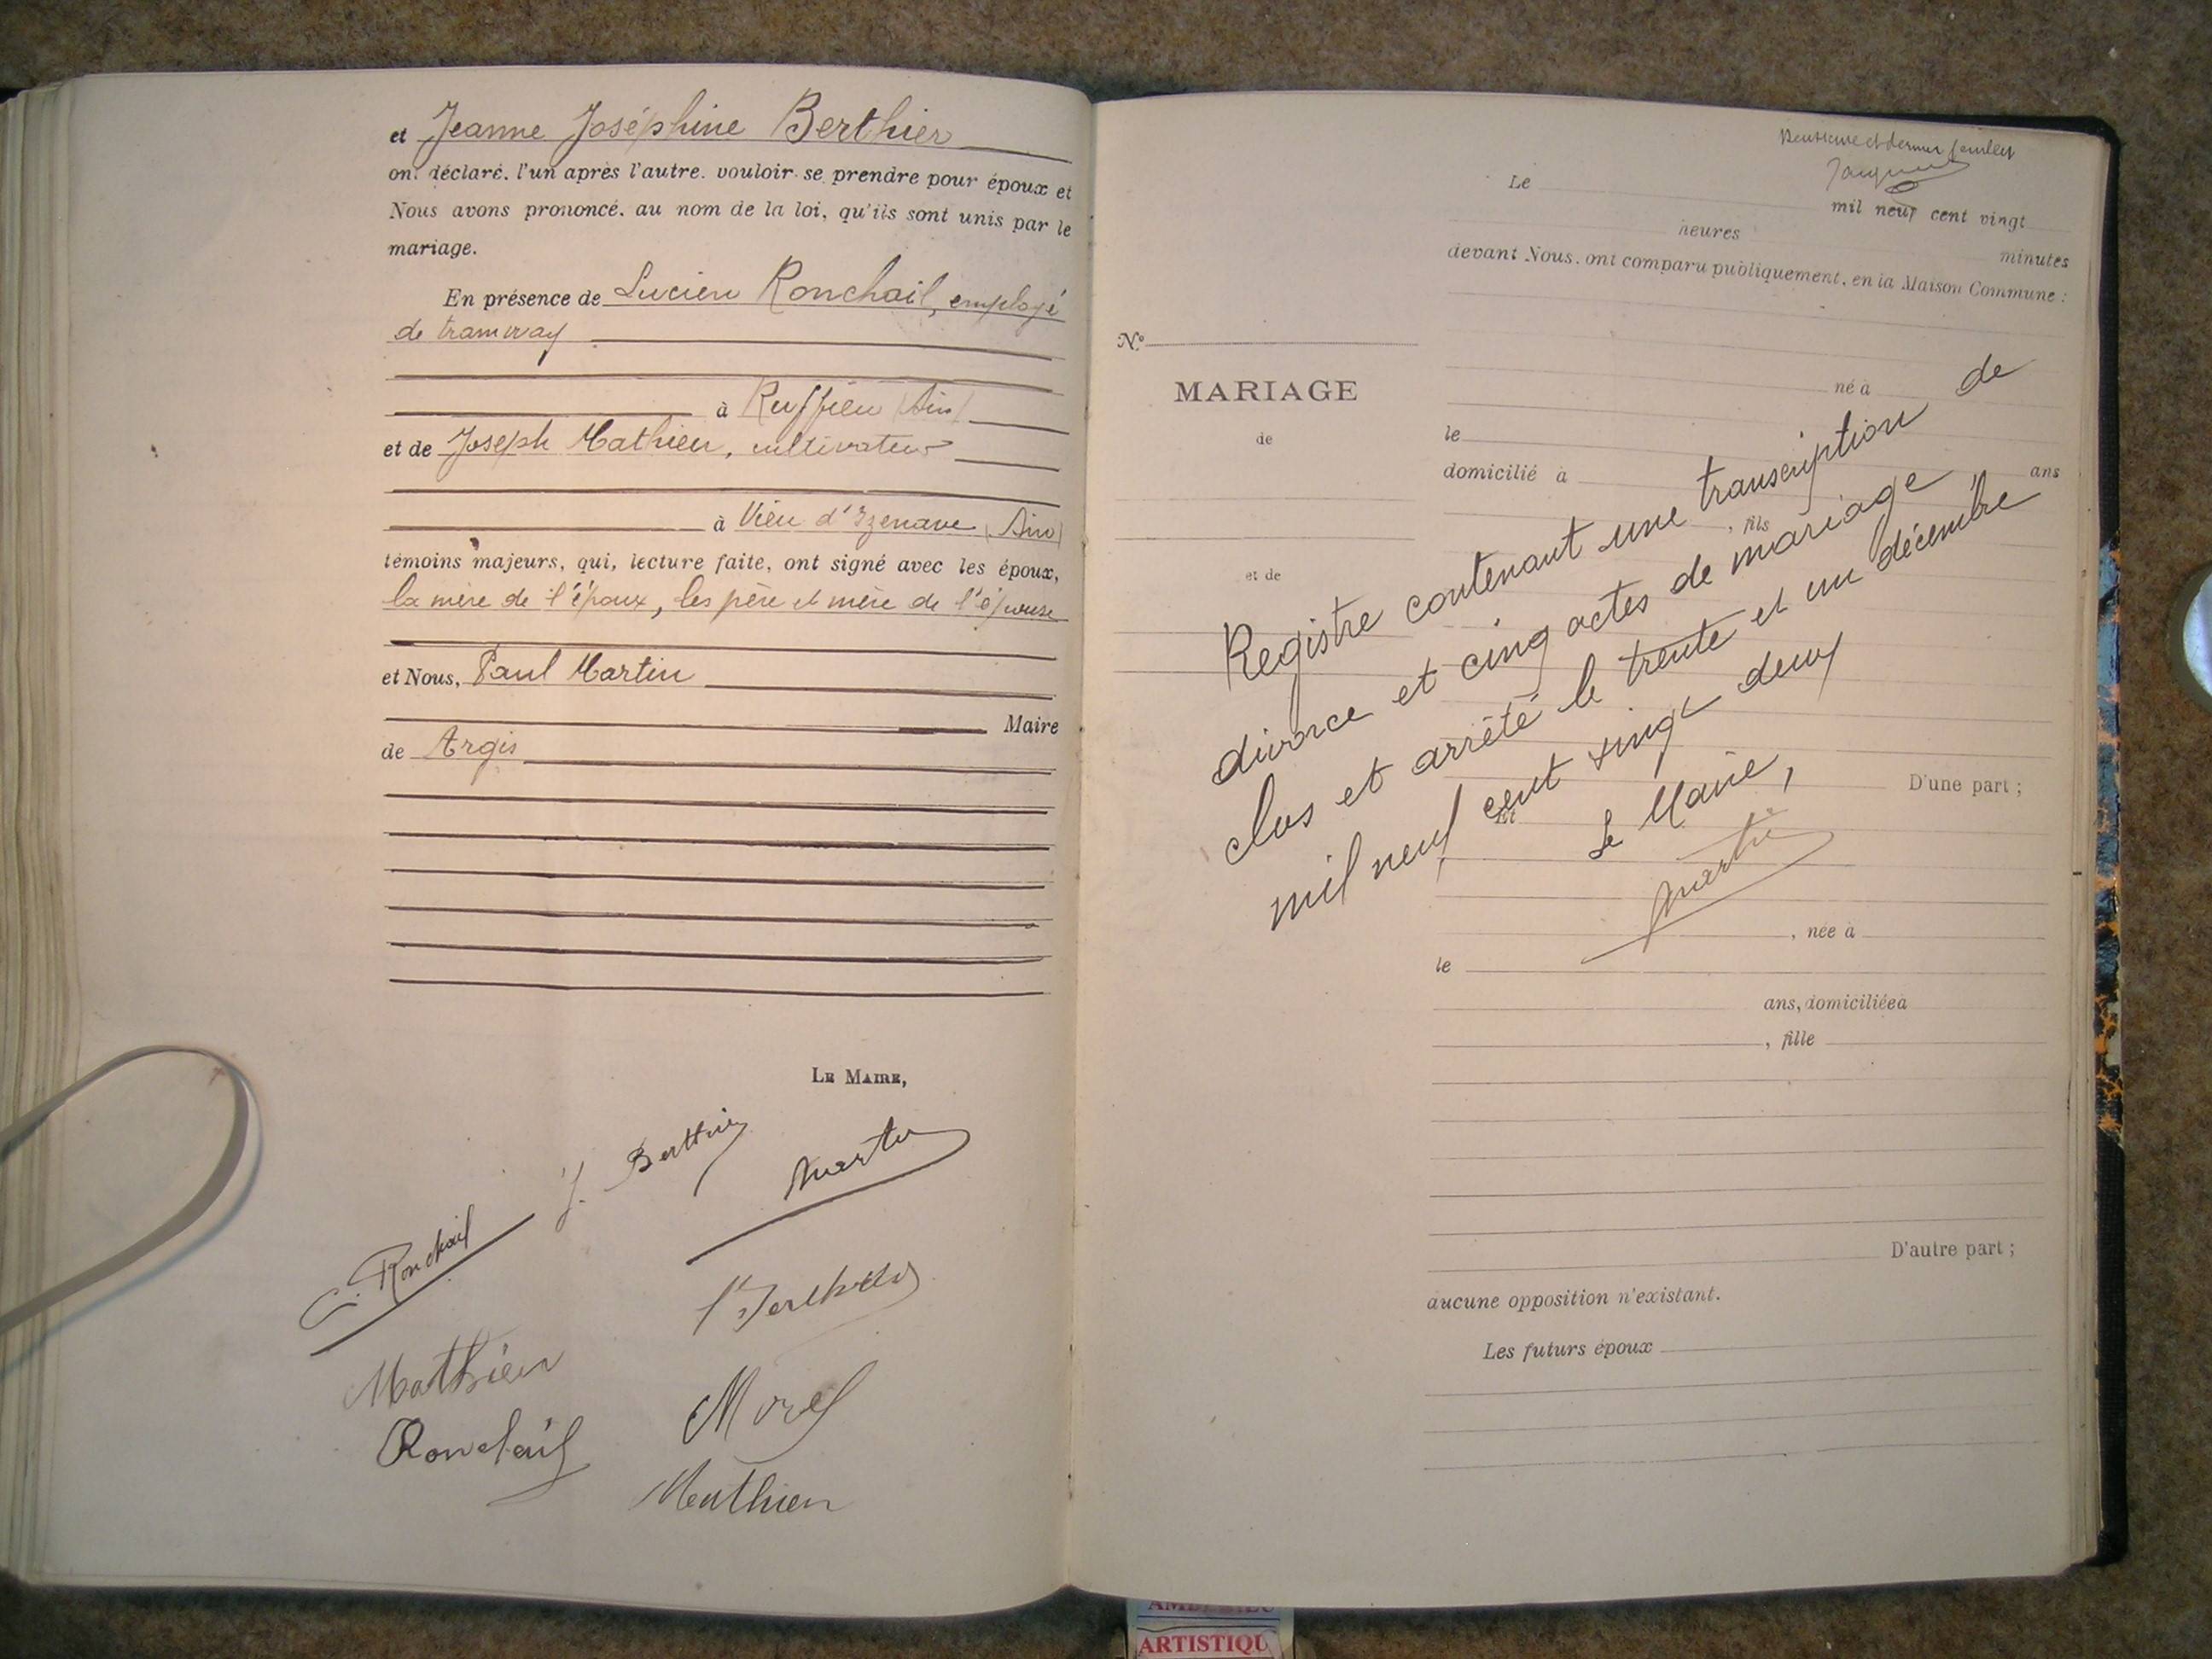 et Jeanne Joséphine Berthier
ont déclaré, l'un après l'autre, vouloir se prendre pour époux et
Nous avons prononcé, au nom de la loi, qu'ils sont unis par le
mariage.
En présence de Lucien Ronchail, employé
de tramway
à Ruffieu (Ain)
et de Joseph Mathieu, cultivateur
à Vieu d'Izenave (Ain)
témoins majeurs, qui, lecture faite, ont signé avec les époux,
la mère de l'époux, les père et mère de l'épouse
et Nous, Paul Martin
Maire
de Argis
LE MAIRE,
J. Berthier
Martin
C. Ronchail
Mathieu
Morel
Ronchail
Mathieu
et dernier feuillet
Le
mil neuf cent vingt
heures
minutes
devant Nous, ont comparu publiquement, en la Maison Commune :
N°
MARIAGE
de
et de
né à
le
ans
domicilié à
, fils
Registre contenant une transcription de
divorce et cinq actes de mariage,
clos et arrêté le trente et un décembre
mil neuf cent vingt deux
Le Maire,
Martin
D'une part ;
Et
, née à
le
ans, domiciliée à
, fille
D'autre part ;
aucune opposition n'existant.
Les futurs époux
ARTISTIQU